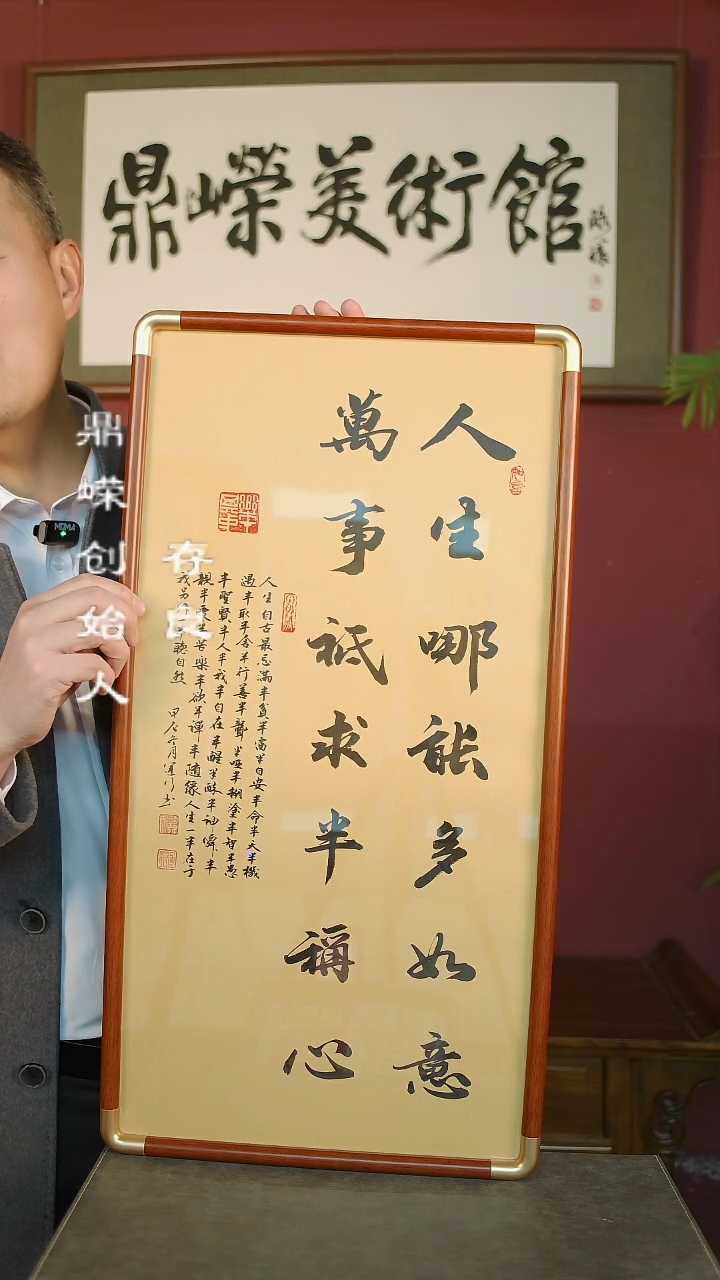 鼎嶸美術館
人生哪能多如意
萬事祗求半稱心
人生自古最忌滿半貧半富半自安半命半天半機
遇半取半舍半行善半聾半啞半糊塗半智半愚
半聖賢半人半我半自在半醒半醉半神
親半愛半苦樂半欲半禪半隨緣人生一半在于
我另
聽自然
甲辰冬月
鼎嵘创始人
存良
MOMA